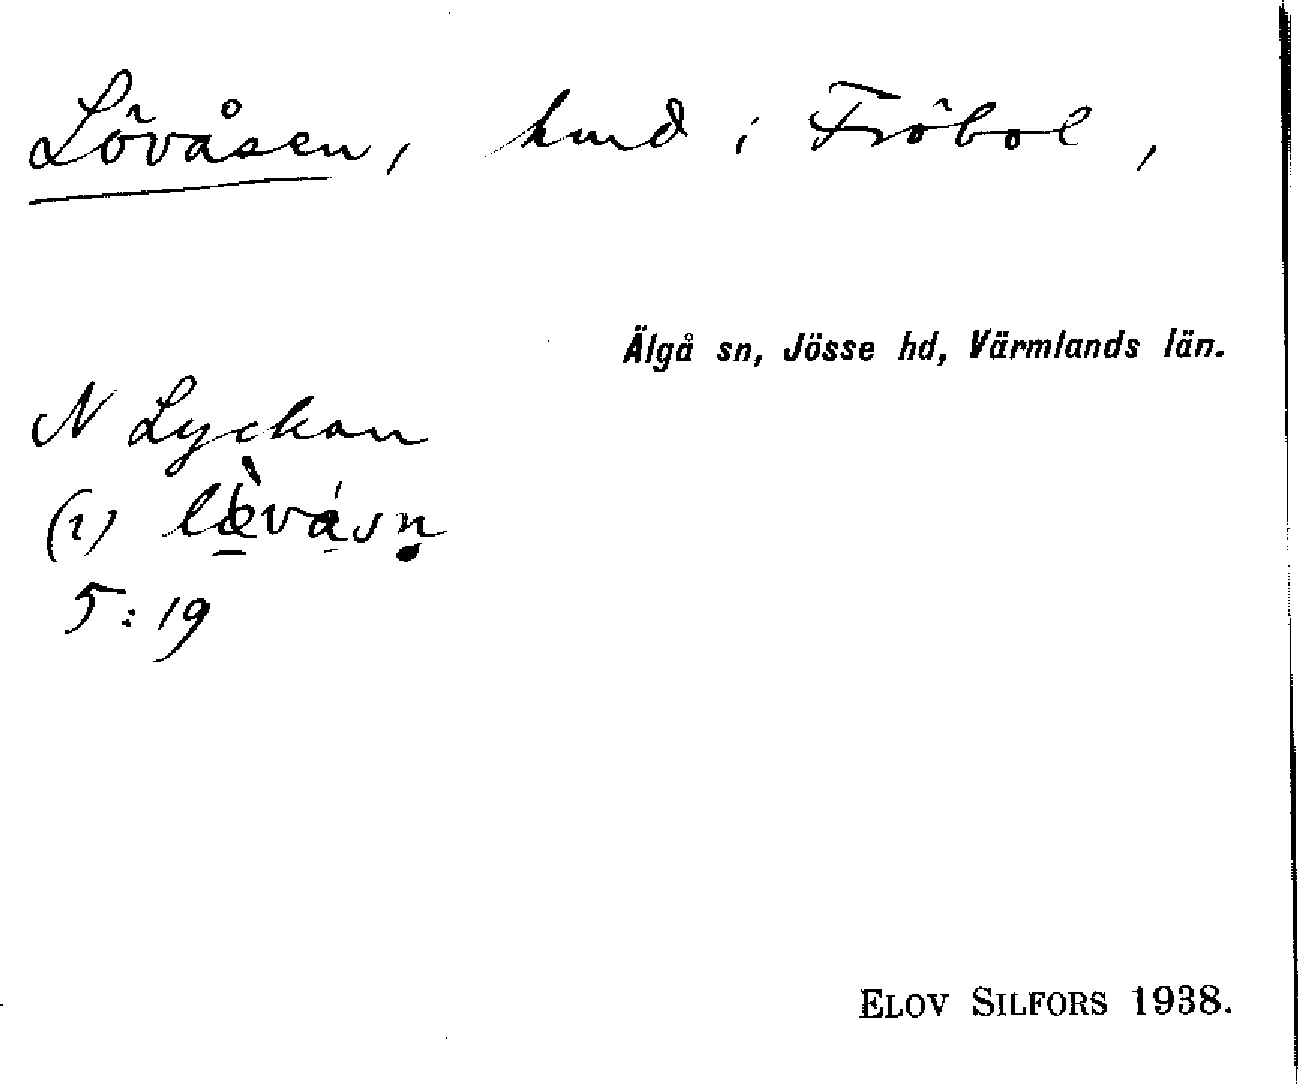 Lövåsen, hmd i Fröbol,
Älgå sn, Jösse hd, Värmlands län.
N Lyckan
(1) lœ̀vásn̥
5:19
ELOV SILFORS 1938.